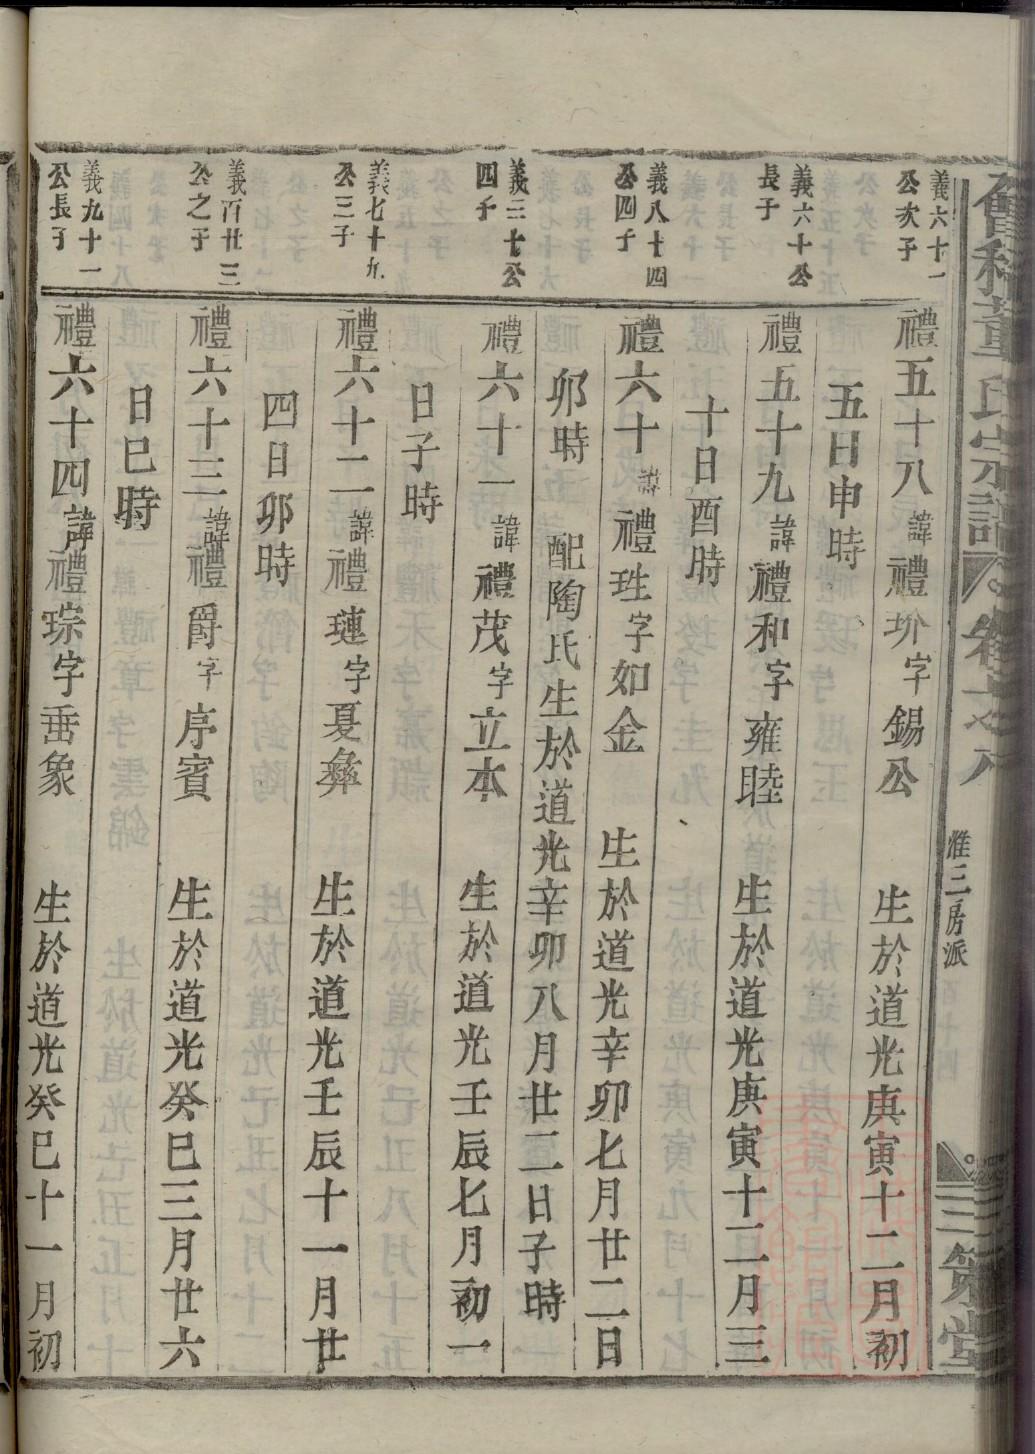 舊科董氏宗譜
卷之
雅三房派
三策堂
義六十一
公次子
禮五十八諱禮玠字錫公 生於道光庚寅十二月初
五日申時
義六十公
長子
禮五十九諱禮和字雍睦 生於道光庚寅十二月三
十日酉時
義八十四
公四子
禮六十諱禮玍字如金 生於道光辛卯七月廿二日
卯時 配陶氏生於道光辛卯八月廿二日子時
義三十公
四子
禮六十一諱禮茂字立本 生於道光壬辰七月初一
日子時
義七十九
公三子
禮六十二諱禮璉字夏彝 生於道光壬辰十一月廿
四日卯時
義百廿三
公之子
禮六十三諱禮爵字序賓 生於道光癸巳三月廿六
日巳時
義九十一
公長子
禮六十四諱禮琮字垂象 生於道光癸巳十一月初